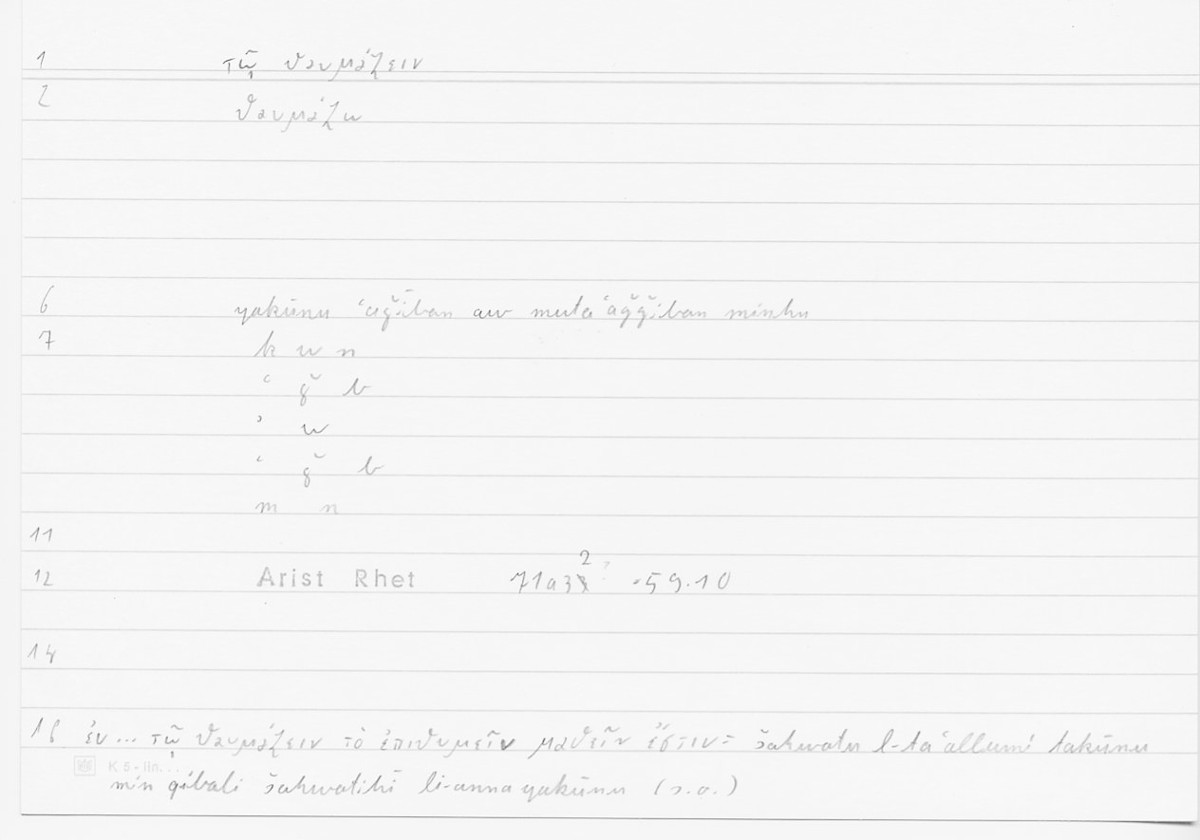 1 τῷ θαυμάζειν
2 θαυμάζω
6 yakūnu ʿaǧīban aw mutaʿaǧǧiban minhu
7 k w n
ʿ ǧ b
ʾ w
ʿ ǧ b
m n
11
12 Arist Rhet 71a32 59.10
14
16 ἐν ... τῷ θαυμάζειν τὸ ἐπιθυμεῖν μαθεῖν ἐστιν = šahwatu l-taʿallumi takūnu
K 5 - lin. . .
min qibali šahwatihi li-anna yakūnu (s.o.)